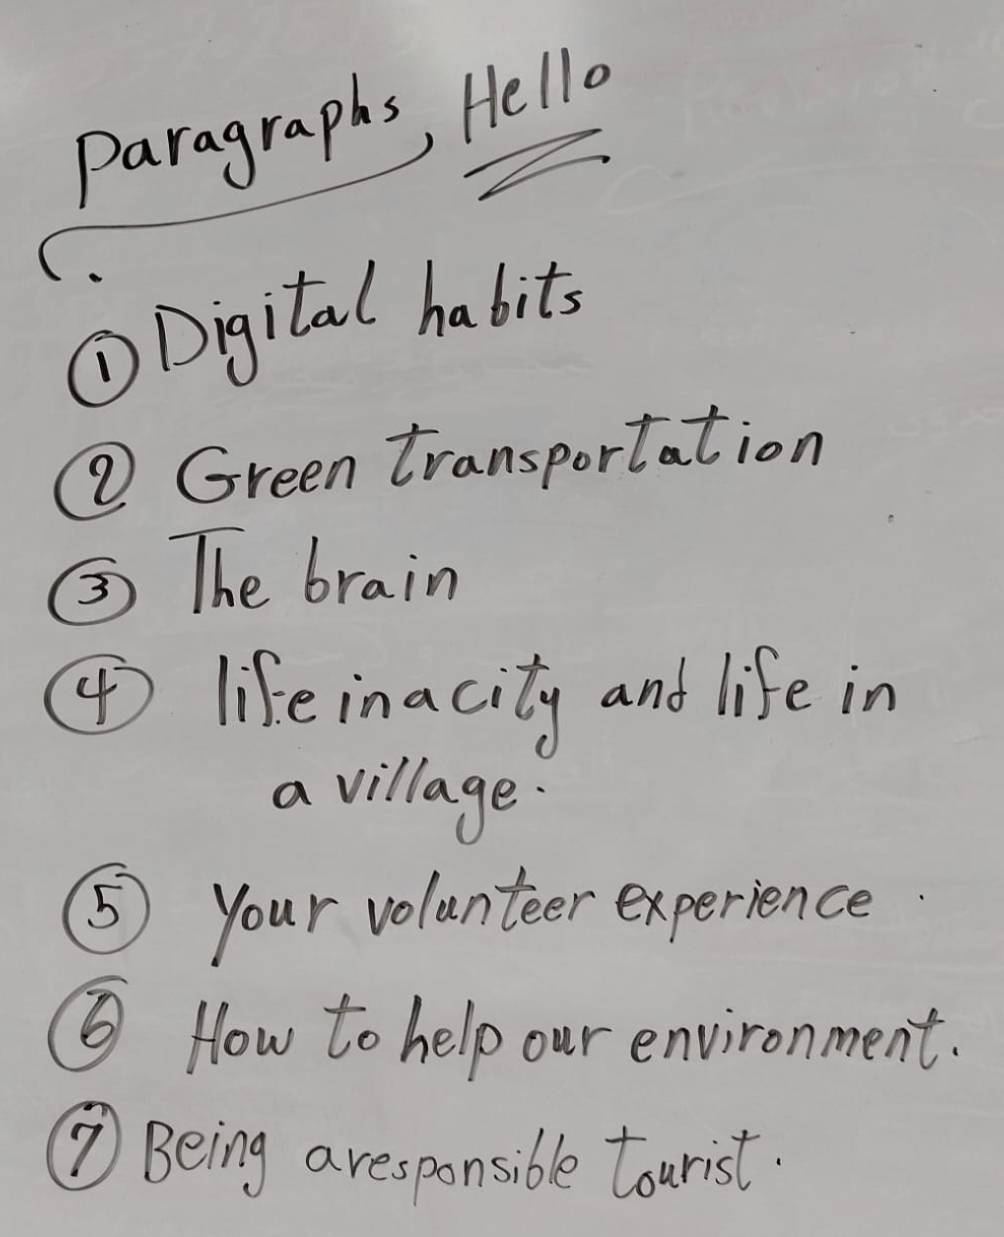 Paragraphs, Hello
① Digital habits
② Green transportation
③ The brain
④ life in a city and life in
a village.
⑤ Your volunteer experience.
⑥ How to help our environment.
⑦ Being a responsible tourist.